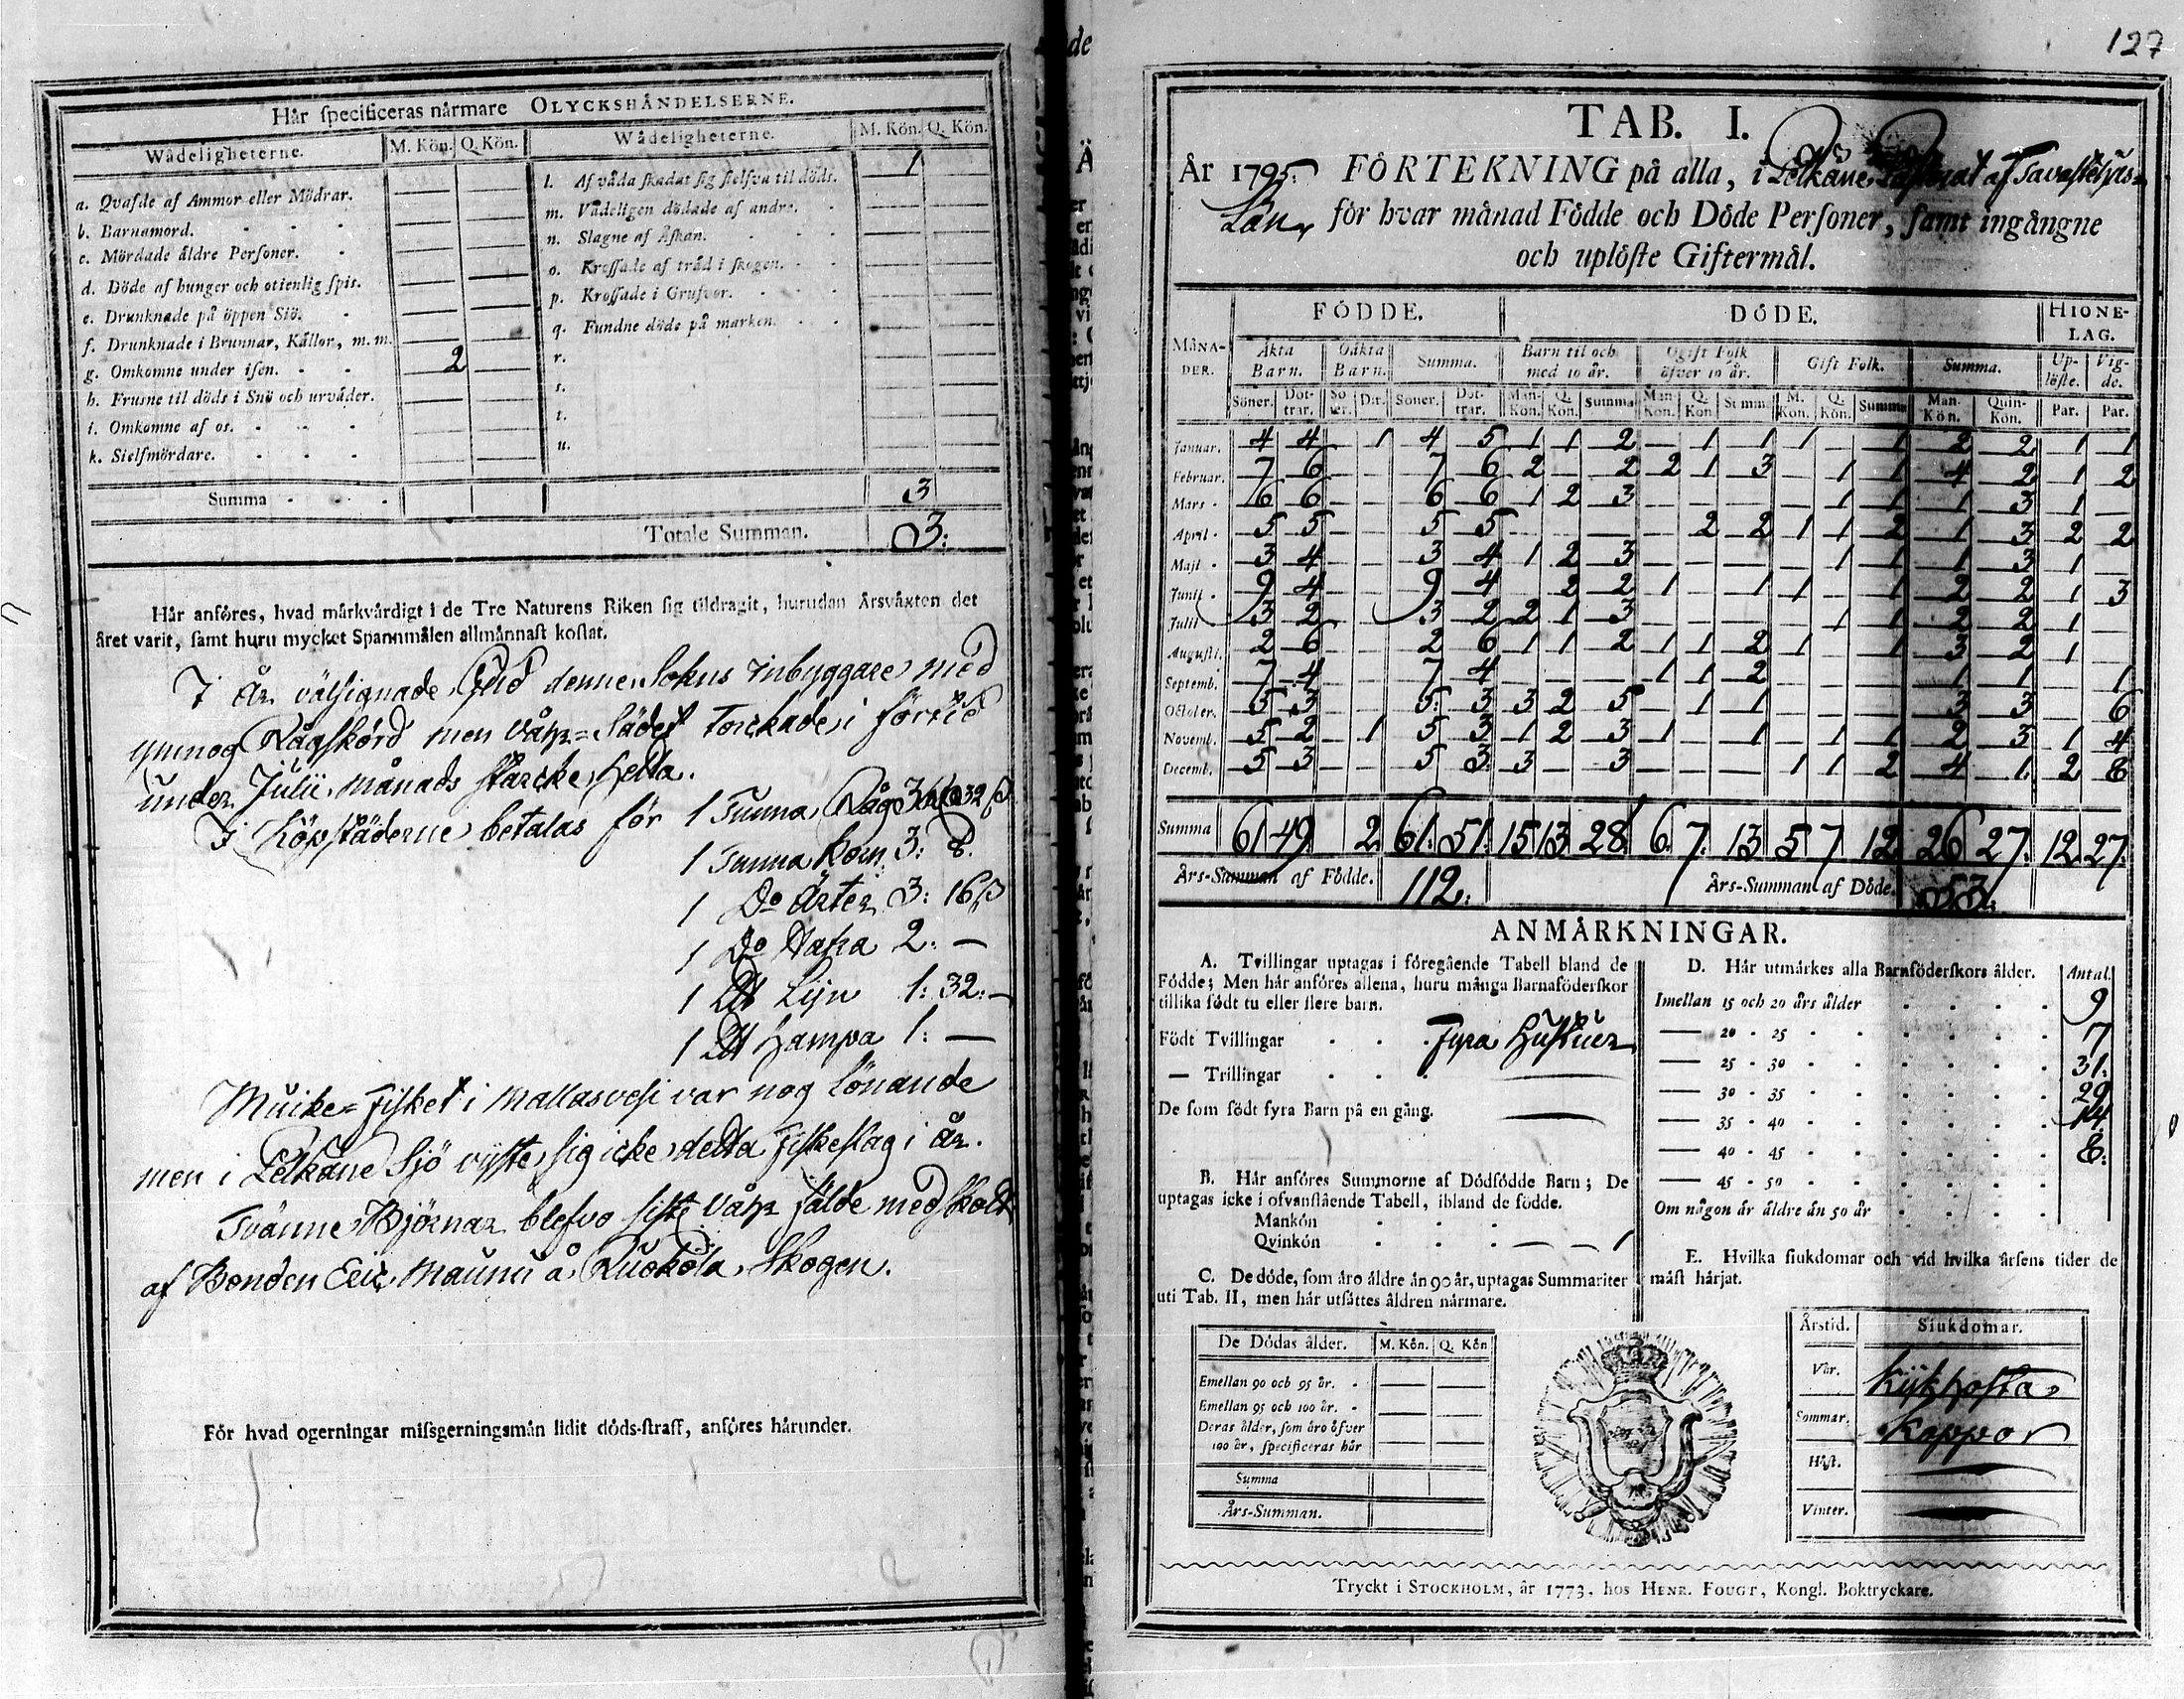 Hår specificeras nårmare OLYCKSHÅNDELSERNE.
Wådeligheterne. M. Kön. Q. Kön. Wådeligheterne. M. Kön. Q. Kön.
a. Qvafde af Ammor eller Mödrar. — —
b. Barnamord. — —
c. Mördade åldre Personer. — —
d. Döde af hunger och otienlig spis. — —
e. Drunknade på öppen Siö. — —
f. Drunknade i Brunnar, Kållor, m. m. — —
g. Omkomne under isen. 2 —
h. Frusne til döds i Snö och urvåder. — —
i. Omkomne af os. — —
k. Sielfmördare. — —
l. Af våda skadat sig sielfva til döds. 1 —
m. Vådeligen dödade af andre. — —
n. Slagne af Åskan. — —
o. Krossade af tråd i skogen. — —
p. Krossade i Grufvor. — —
q. Fundne döde på marken. — —
r. — —
s. — —
t. — —
u. — —
Summa 3
Totale Summan. 3:
Hår anföres, hvad mårkvårdigt i de Tre Naturens Riken sig tildragit, hurudan Årsvåxten det
året varit, samt huru mycket Spannmålen allmånnast kostat.
I år välsignade Gud denne Lokus Inbyggare med
ymnog Rågskörd men Vårs=Sädet torckade i förtid
under Julii månads starcke hetta.
I Köpstäderne betalas för 1 Tunna Råg 3 32 ß
1 Tunna Korn 3: 8.
1 Do Ärter 3: 16 ß
1 Do Hafra 2: —
1 Lijn 1: 32: —
1 Hampa 1: —
Muike=Fisket i Mallasvesi var nog lönande
men i Pelkäne Sjö viste sig icke detta Fiskeslag i år.
Tvänne Björnar blefvo siste Vår fälde med Skott
af Bonden Eric Maunu å Ruokola Skogen.
För hvad ogerningar missgerningsmån lidit döds-straff, anföres hårunder.
127
TAB. I.
År 1795. FÖRTEKNING på alla, i Pelkäne Pastorat af Tavastehus
Län för hvar månad Födde och Döde Personer, samt ingångne
och uplöste Giftermål.
FÖDDE. DÖDE. HIONE-
LAG.
MÅNA-
DER. Åkta
Barn. Oåkta
Barn. Summa. Barn til och
med 10 år. Ogift Folk
öfver 10 år. Gift Folk. Summa. Up-
löste. Vig-
de.
Söner. Döt-
trar. Sö
ner. Dtr. Söner. Döt-
trar. Man-
Kön. Q.
Kön. Summa Man
Kön. Q.
Kön Summa M.
Kön. Q.
Kön. Summa Man-
Kön. Quin-
Kön. Par. Par.
Januar. 4 4 — 1 4 5 1 1 2 — 1 1 1 — 1 2 2 1 1
Februar. 7 6 — — 7 6 2 — 2 2 1 3 — 1 1 4 2 1 2
Mars 6 6 — — 6 6 1 2 3 — — — — 1 1 1 3 1 —
April 5 5 — — 5 5 — — — — 2 2 1 1 2 1 3 2 2
Maji 3 4 — — 3 4 1 2 3 — — — — 1 1 1 3 1 —
Junii 9 4 — — 9 4 — 2 2 1 — 1 1 — 1 2 2 1 3
Julii 3 2 — — 3 2 2 1 3 — — — — 1 1 2 2 1 —
Augusti. 2 6 — — 2 6 1 1 2 1 1 2 1 — 1 3 2 1 —
Septemb. 7 4 — — 7 4 — — — 1 1 2 — — — 1 1 — 1
October. 5 3 — — 5 3 3 2 5 — 1 1 — — — 3 3 — 6
Novemb. 5 2 — 1 5 3 1 2 3 1 — 1 — 1 1 2 3 1 4
Decemb. 5 3 — — 5 3 3 — 3 — — — 1 1 2 4 1 2 8
Summa 61 49 2 61: 51: 15 13 28 6. 7. 13 5 7 12 26 27: 12 27:
Års-Summan af Födde. 112: Års-Summan af Döde. 53:
ANMÅRKNINGAR.
A. Tvillingar uptagas i föregående Tabell bland de
Födde; Men hår anföres allena, huru många Barnaföderskor
tillika födt tu eller flere barn.
Födt Tvillingar Fyra Hustrur
— Trillingar —
De som födt fyra Barn på en gång. —
B. Hår anföres Summorne af Dödfödde Barn; De
uptagas icke i ofvanstående Tabell, ibland de födde.
Mankön
Qvinkön — — 1
C. De döde, som åro åldre ån 90 år, uptagas Summariter
uti Tab. II, men hår utsåttes åldren nårmare.
De Dödas ålder. M. Kön. Q. Kön
Emellan 90 och 95 år. — —
Emellan 95 och 100 år. — —
Deras ålder, som åro öfver
100 år, specificeras hår — —
Summa
Års-Summan.
D. Hår utmårkes alla Barnföderskors ålder. Antal.
Imellan 15 och 20 års ålder 9
— 20 - 25 17
— 25 - 30 31:
— 30 - 35 29
— 35 - 40 14
— 40 - 45 8:
— 45 - 50
Om någon år åldre ån 50 år
E. Hvilka siukdomar och vid hvilka årsens tider de
måst hårjat.
Årstid. Siukdomar.
Vår. Kijkhosta
Sommar. Koppor
Höst. —
Vinter. —
Tryckt i STOCKHOLM, år 1773, hos HENR. FOUGT, Kongl. Boktryckare.